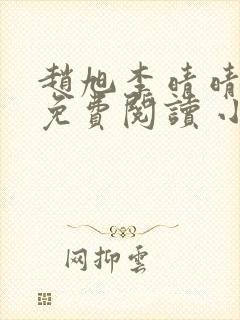 趙旭李晴晴
免費閱讀小
网抑雲